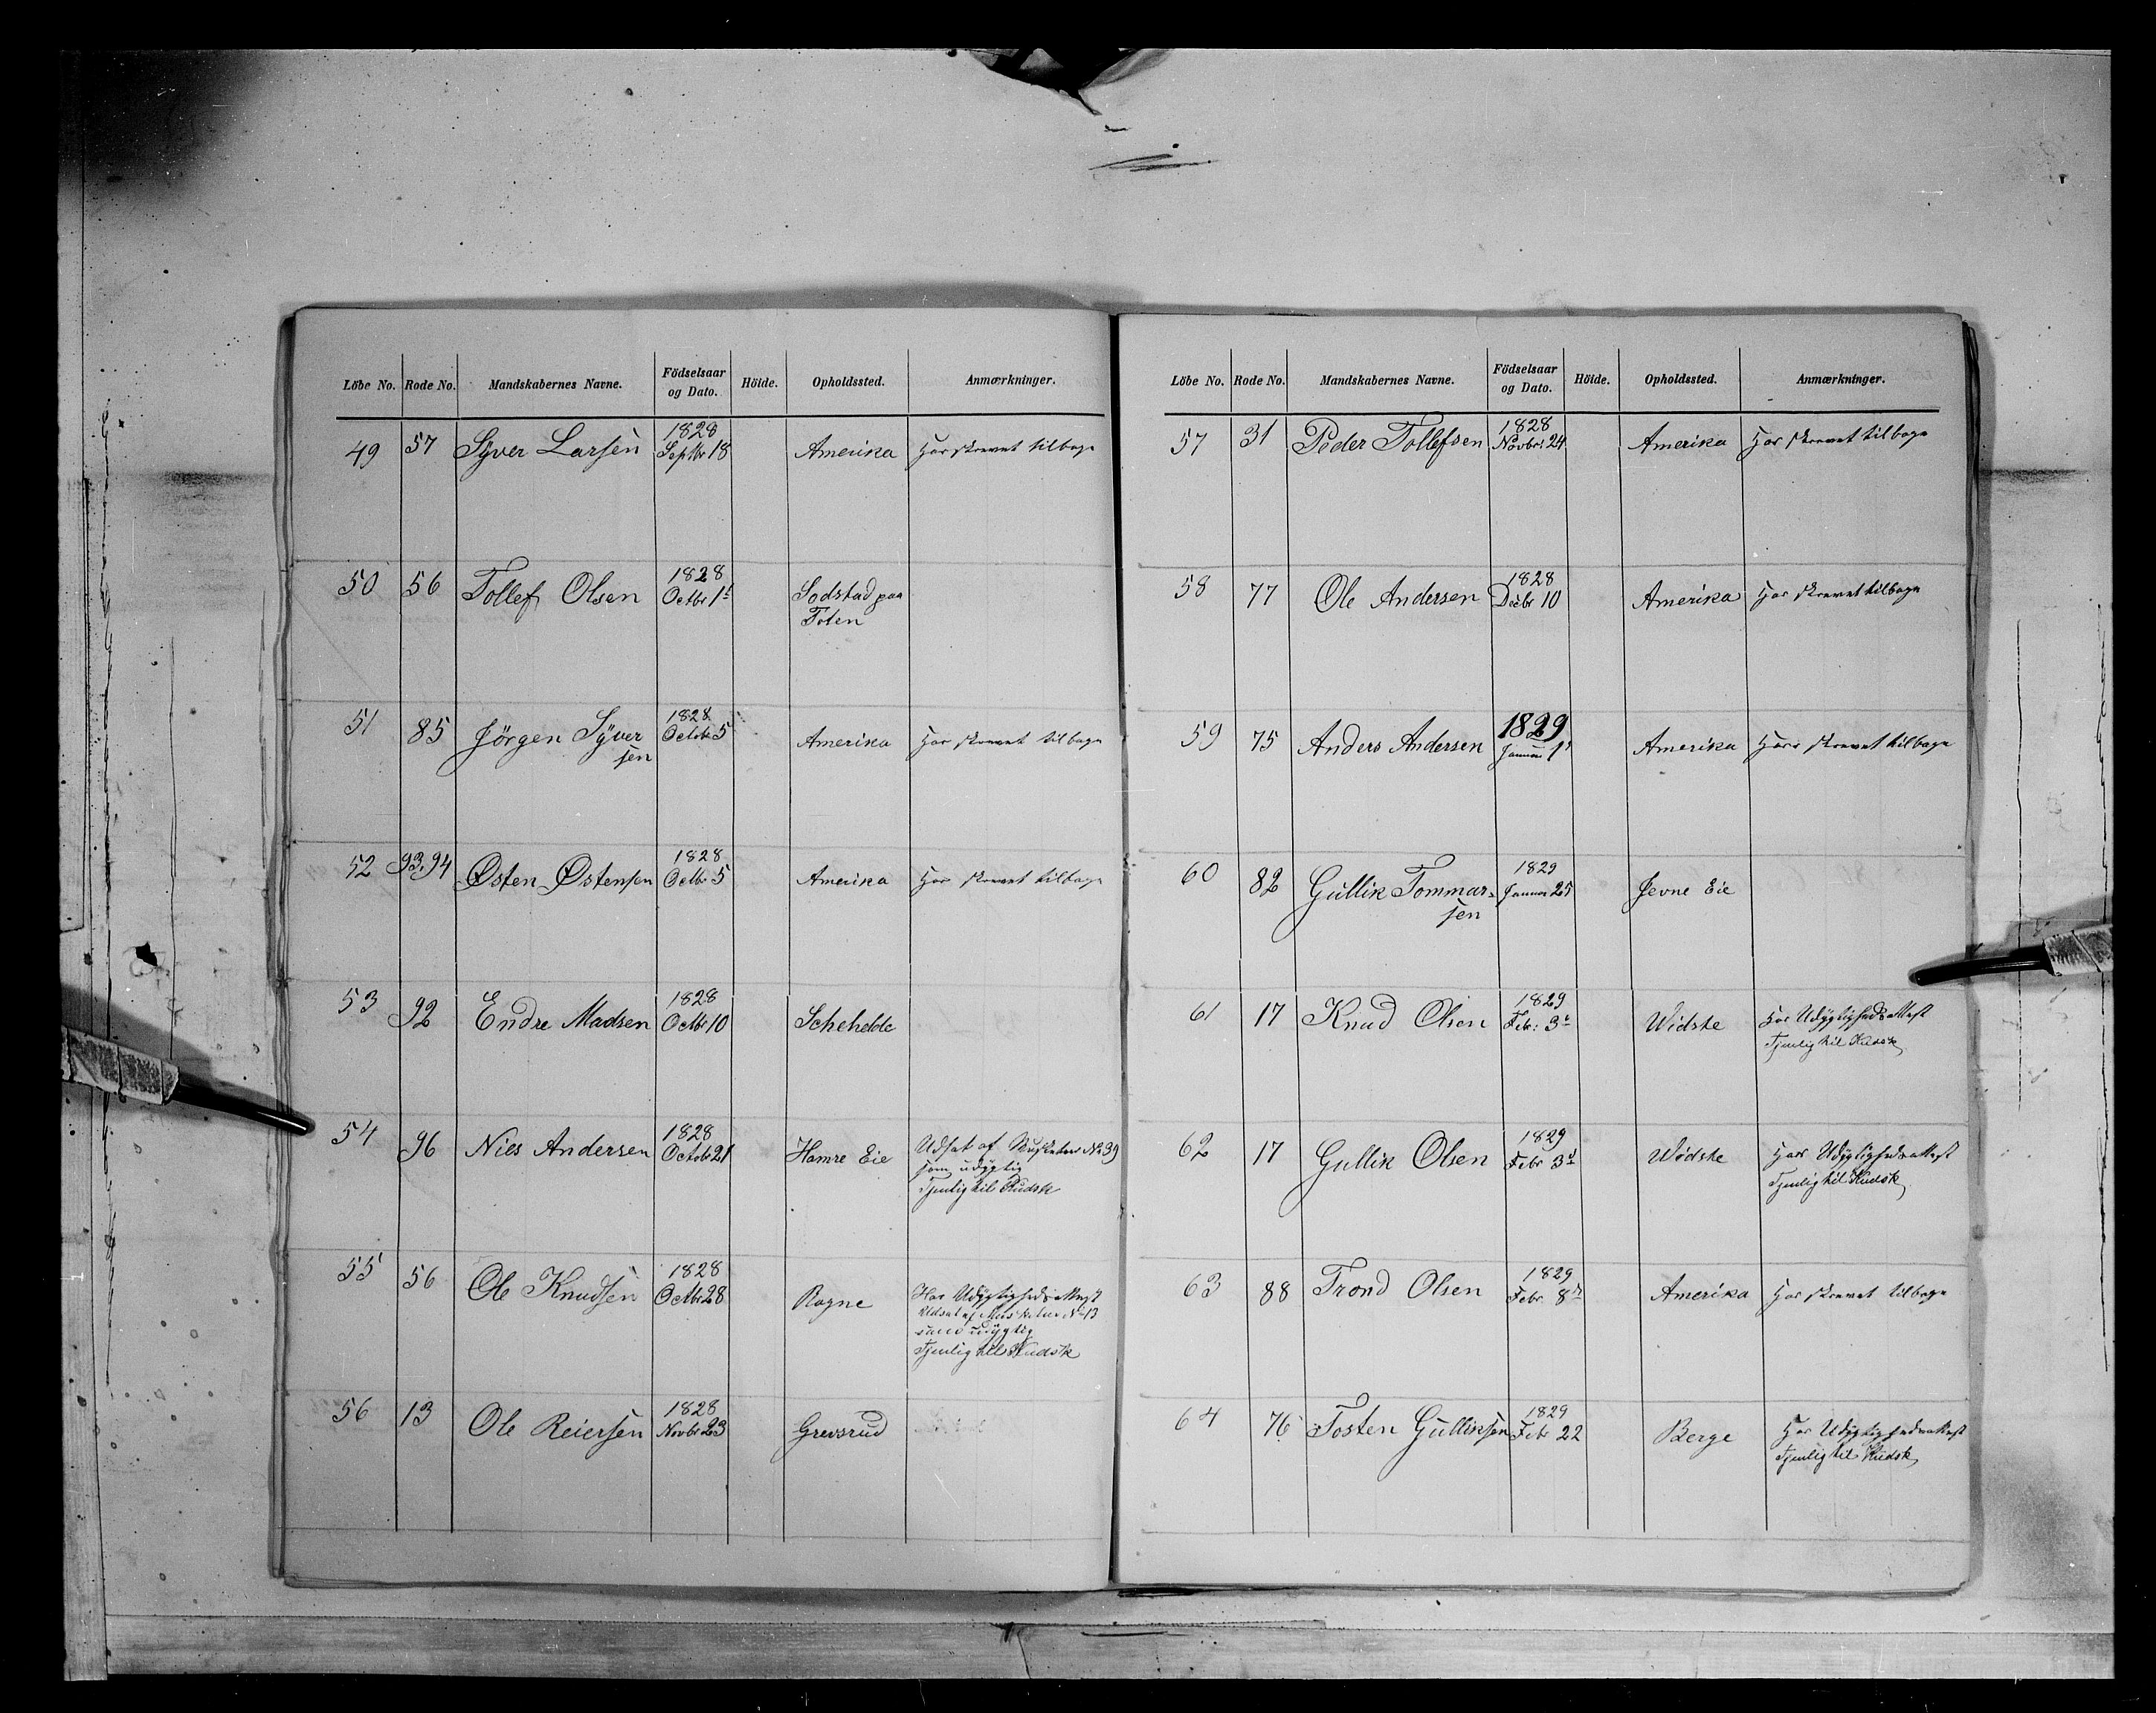 Löbe No. Rode No. Mandskabernes Navne. Födselsaar og Dato. Höide. Opholdssted. Anmærkninger.
49 57 Syver Larsen 1828 Septbr 18 Amerika Har skrevet tilbage
50 56 Tollef Olsen 1828 Octbr 1t Sodstad paa
Toten
51 85 Jörgen Syver 1828 Octob 5 Amerika Har skrevet tilbage
sen
52 93.94 Østen Østensen 1828 Octbr 5 Amerika Har skrevet tilbage
53 92 Endre Madsen 1828 Octbr 10 Schehelde
54 96 Niels Andersen 1828 Octob 21 Hamre Eie Udsat af Musketeer No 39
som udygtig
Tjenlig til Kudsk
55 56 Ole Knudsen 1828 Octbr 28 Rogne Har Udygtighedsattest
Udsat af Musketeer No 13
som udygtig
Tjenlig til Kudsk
56 13 Ole Reiersen 1828 Novbr 23 Grevsrud
Löbe No. Rode No. Mandskabernes Navne. Födselsaar og Dato. Höide. Opholdssted. Anmærkninger.
57 31 Peder Tollefsen 1828 Novbr: 24 Amerika Har skrevet tilbage
58 77 Ole Andersen 1828 Decbr 10 Amerika Har skrevet tilbage
59 75 Anders Andersen 1829 Januar 1t Amerika Har skrevet tilbage
60 82 Gullik Tommas- 1829 Januar 25 Jevne Eie
sen
61 17 Knud Olsen 1829 Febr: 3t Widste Har Udygtighedsattest
Tjenlig til Kudsk
62 17 Gullik Olsen 1829 Febr 3t Widste Har Udygtighedsattest
Tjenlig til Kudsk
63 88 Trond Olsen 1829 Febr 8de Amerika Har skrevet tilbage
64 76 Tosten Gulliksen 1829 Febr 22 Berge Har Udygtighedsattest
Tjenlig til Kudsk